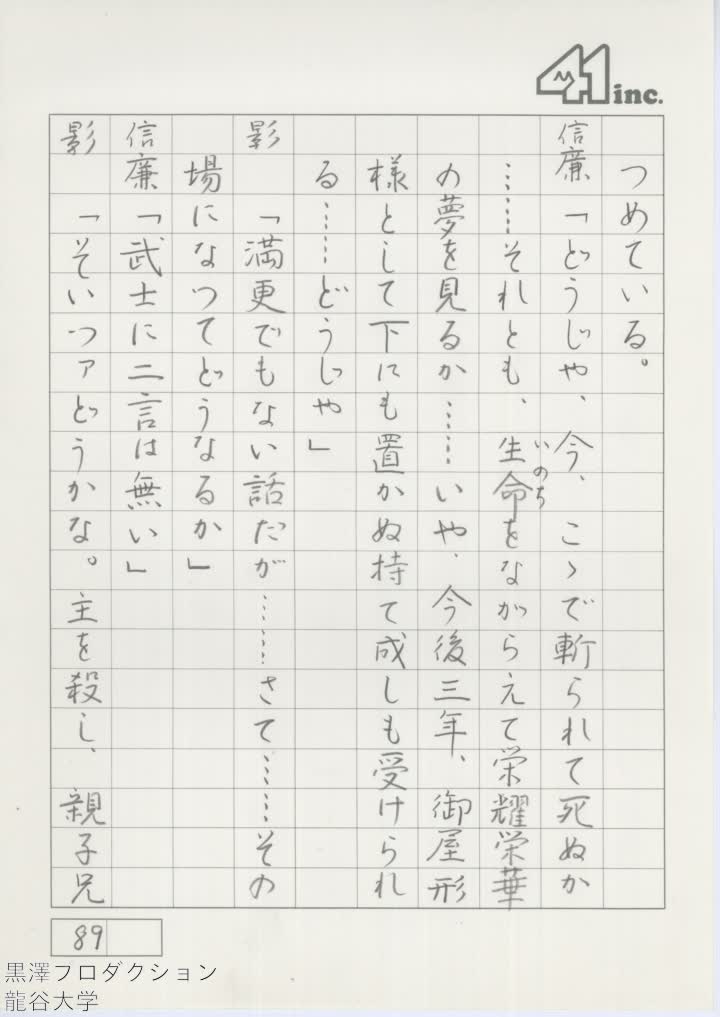 41 inc.
つめている。
信廉「どうじゃ、今、こゝで斬られて死ぬか
……それとも、生命をながらえて栄耀栄華
いのち
の夢を見るか……いや、今後三年、御屋形
様として下にも置かぬ持て成しも受けられ
る……どうじゃ」
影「満更でもない話だが……さて……その
場になってどうなるか」
信廉「武士に二言は無い」
影「そいつァどうかな。主を殺し、親子兄
89
黒澤フロダクション
龍谷大学